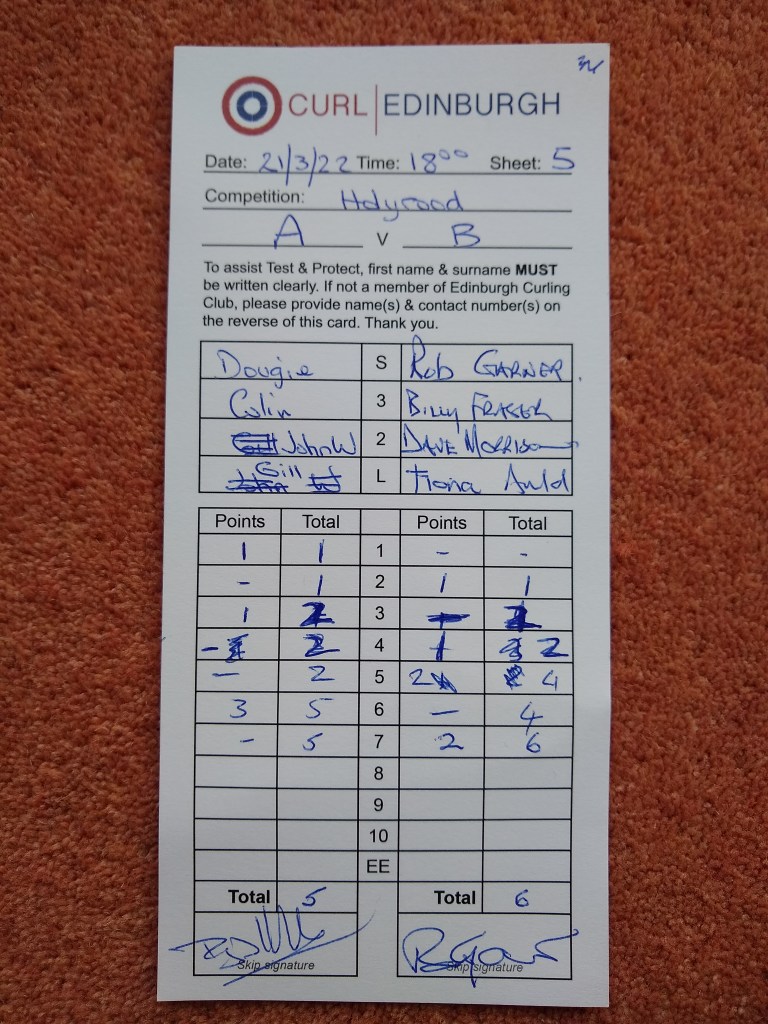 CURL EDINBURGH
Date: 21/3/22 Time: 18⁰⁰ Sheet: 5
Competition: Holyrood
A V B
To assist Test & Protect, first name & surname MUST
be written clearly. If not a member of Edinburgh Curling
Club, please provide name(s) & contact number(s) on
the reverse of this card. Thank you.
Dougie S Rob GARNER
Colin 3 Billy FRASER
John W 2 DAVE MORRISON
Gill L Fiona Auld
Points Total Points Total
1 1 1 - -
- 1 2 1 1
1 2 3 - 1
- 2 4 1 2
- 2 5 2 4
3 5 6 - 4
- 5 7 2 6
8
9
10
EE
Total 5 Total 6
Skip signature Skip signature